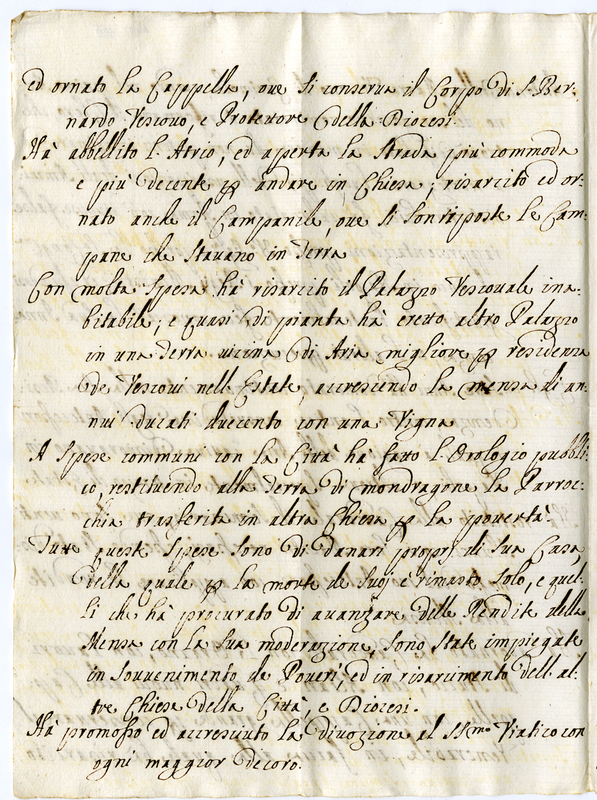 ed ornato la Cappella, ove si conserva il Corpo di S. Ber-
nardo Vescovo, e Protettore della Diocesi.
Hà abbellito l'Atrio, ed aperta la Strada più commoda
e più decente p andare in Chiesa; risarcito ed or-
nato anche il Campanile, ove si son riposte le Cam-
pane che stavano in terra
Con molta spesa hà risarcito il Palazzo Vescovale ina-
bitabile; e quasi di pianta hà eretto altro Palazzo
in una Terra vicina di Aria migliore p residenza
de Vescovi nell'Estate, accrescendo la mensa di an-
nui ducati duecento con una Vigna
A spese communi con la Città hà fatto l'Orologio pubbli-
co, restituendo alla Terra di Mondragone la Parroc-
chia trasferita in altra Chiesa p la povertà
Tutte queste spese sono di danari proprj di sua Casa,
della quale p la morte de suoj è rimasto solo, e quel-
li che hà procurato di avanzare delle Rendite della
Mensa con la sua moderazione, sono state impiegate
in sovvenimento de Poveri, ed in risarcimento dell'al-
tre Chiese della Città, e Diocesi.
Hà promosso ed accresciuto la divozione al SSmo Viatico con
ogni maggior decoro.